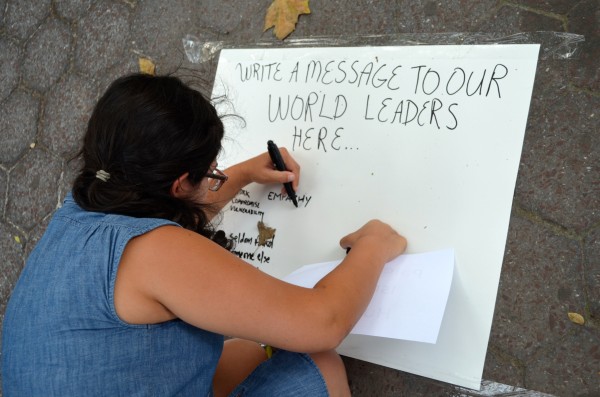 WRITE A MESSAGE TO OUR
WORLD LEADERS
HERE...
EMPATHY
COMPROMISE
VULNERABILITY
else